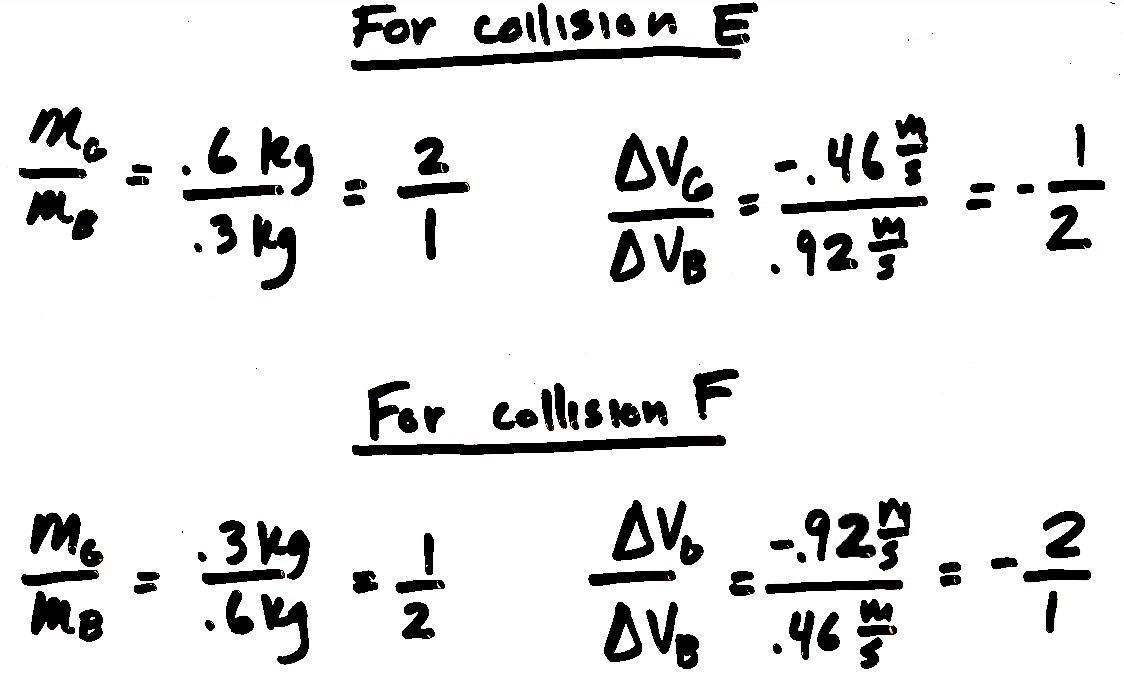 For collision E
m_G/m_B = .6 kg/.3 kg = 2/1    ΔV_G/ΔV_B = -.46 m/s/.92 m/s = -1/2
For collision F
m_G/m_B = .3 kg/.6 kg = 1/2    ΔV_G/ΔV_B = -.92 m/s/.46 m/s = -2/1